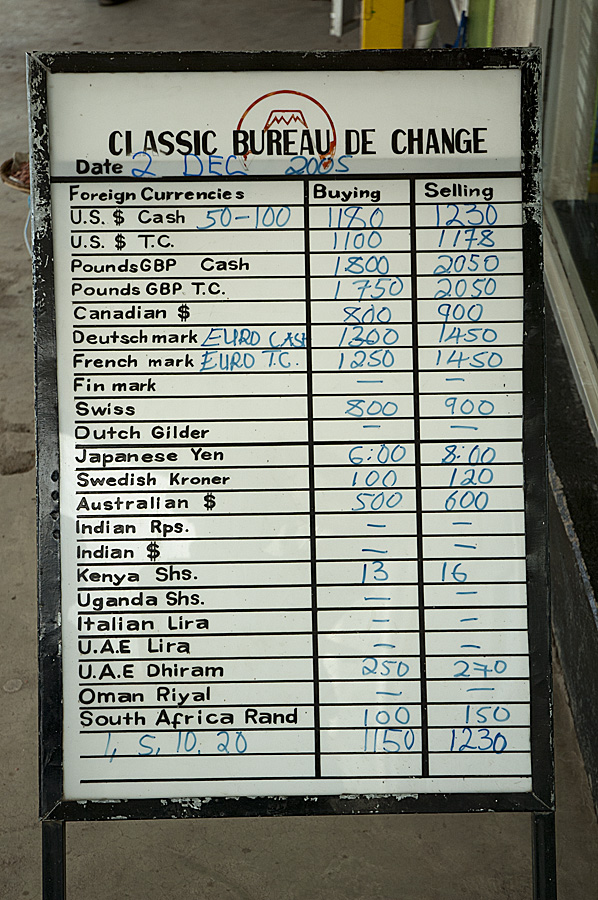 CLASSIC BUREAU DE CHANGE
Date 2 DEC 2005
Foreign Currencies Buying Selling
U.S. $ Cash 50-100 1180 1230
U.S. $ T.C. 1100 1178
Pounds GBP Cash 1800 2050
Pounds GBP T.C. 1750 2050
Canadian $ 800 900
Deutschmark EURO CASH 1300 1450
French mark EURO T.C. 1250 1450
Fin mark — —
Swiss 800 900
Dutch Gilder — —
Japanese Yen 6:00 8:00
Swedish Kroner 100 120
Australian $ 500 600
Indian Rps. — —
Indian $ — —
Kenya Shs. 13 16
Uganda Shs. — —
Italian Lira — —
U.A.E Lira — —
U.A.E Dhiram 250 270
Oman Riyal — —
South Africa Rand 100 150
1, 5, 10, 20 1150 1230